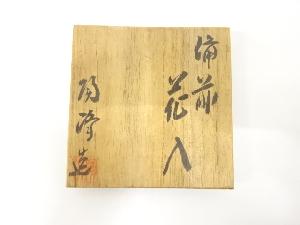 備前
花入
陽峰造